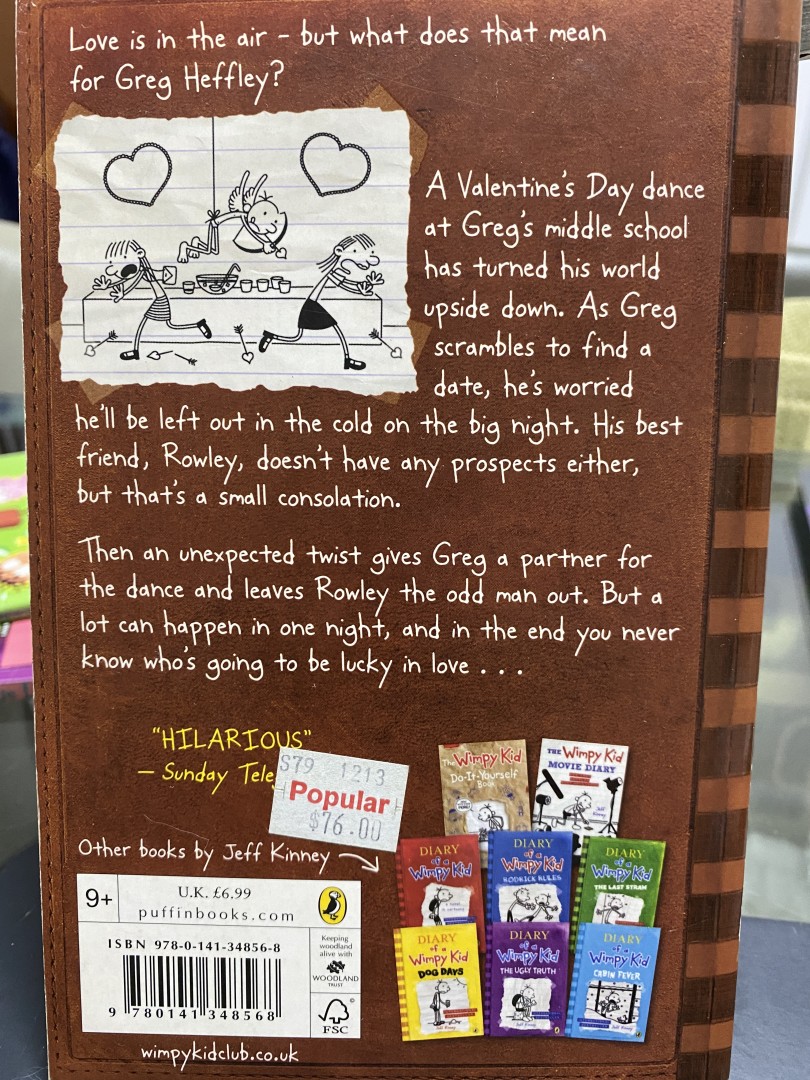 Love is in the air – but what does that mean
for Greg Heffley?
A Valentine's Day dance
at Greg's middle school
has turned his world
upside down. As Greg
scrambles to find a
date, he's worried
he'll be left out in the cold on the big night. His best
friend, Rowley, doesn't have any prospects either,
but that's a small consolation.
Then an unexpected twist gives Greg a partner for
the dance and leaves Rowley the odd man out. But a
lot can happen in one night, and in the end you never
know who's going to be lucky in love . . .
"HILARIOUS"
– Sunday Tele
S79 1213
Popular
$76.00
Other books by Jeff Kinney
The Wimpy Kid
Do-It-Yourself
Book
THE Wimpy Kid
MOVIE DIARY
Jeff Kinney
DIARY
of a
Wimpy Kid
DIARY
of a
Wimpy Kid
RODRICK RULES
DIARY
of a
Wimpy Kid
THE LAST STRAW
DIARY
of a
Wimpy Kid
DOG DAYS
Jeff Kinney
DIARY
of a
Wimpy Kid
THE UGLY TRUTH
Jeff Kinney
DIARY
of a
Wimpy Kid
CABIN FEVER
Jeff Kinney
9+
U.K. £6.99
puffinbooks.com
ISBN 978-0-141-34856-8
9 780141 348568
Keeping
woodland
alive with
WOODLAND
TRUST
FSC
wimpykidclub.co.uk